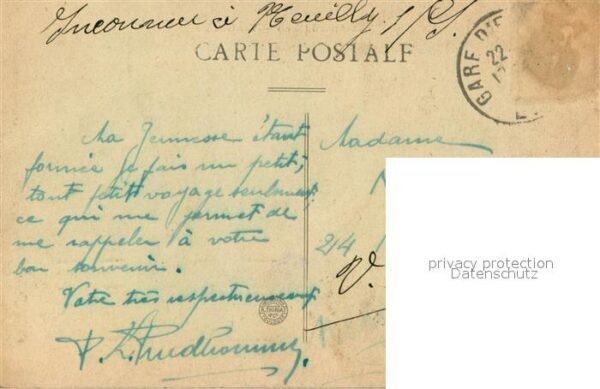 Inconnue à Neuilly s/S.
CARTE POSTALE
GARE D'E
22
Ma Jeunesse étant
formée je fais un petit,
tout petit voyage seulement
ce qui me permet de
me rappeler à votre
bon souvenir.
Votre très respectueusement
P. L. Prudhomme.
Madame
24
V.
privacy protection
Datenschutz